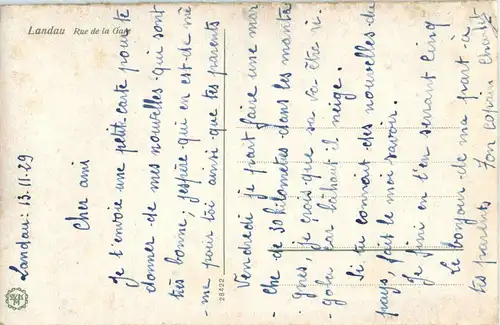 Landau Rue de la Gare
Landau: 13.11.29
Cher ami
Je t'envoie une petite carte pour te
donner de mes nouvelles qui sont
très bonne; j'espère qui en est de mê
me pour toi ainsi que tes parents
Vendredi je part faire une mar
che de 30 kilomètres dans les monta
gnes, je crois que sa va être ri-
golo car là haut il neige.
Si tu connait des nouvelles du
pays, fait le moi savoir.
Je fini en t'en serrant cinq
Le bonjour de ma part à
tes parents Ton copain
28422